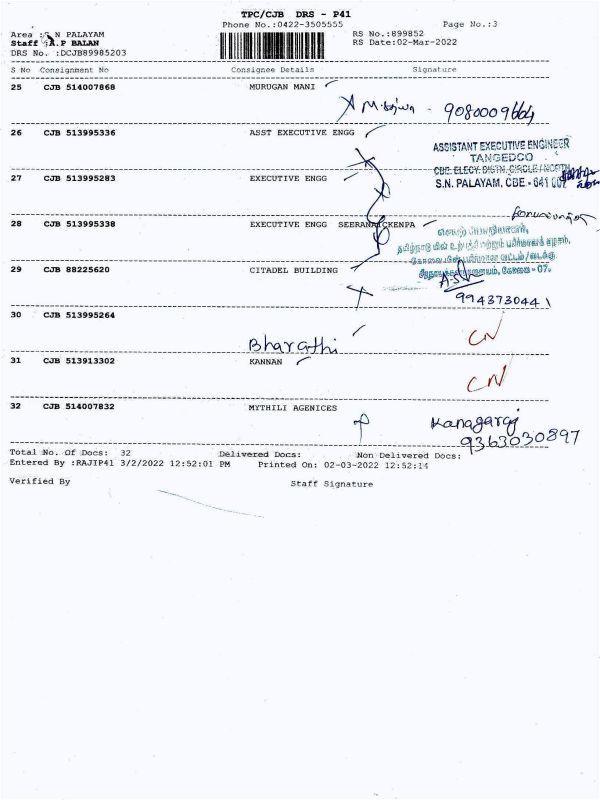 TPC/CJB DRS - P41
Phone No.:0422-3505555 Page No.:3
Area :S N PALAYAM RS No.:899852
Staff :A.P BALAN RS Date:02-Mar-2022
DRS No. :DCJB89985203
S No Consignment No Consignee Details Signature
25 CJB 514007868 MURUGAN MANI
9080009664
26 CJB 513995336 ASST EXECUTIVE ENGG
ASSISTANT EXECUTIVE ENGINEER
TANGEDCO
CBE. ELECY. DISTN. CIRCLE / NORTH
27 CJB 513995283 EXECUTIVE ENGG
S.N. PALAYAM, CBE - 641 007
28 CJB 513995338 EXECUTIVE ENGG SEERANAICKENPA
29 CJB 88225620 CITADEL BUILDING
கோவை - 07.
9943730441
30 CJB 513995264
CN
Bharathi
31 CJB 513913302 KANNAN
CN
32 CJB 514007832 MYTHILI AGENICES
Kanagaraj
9363030897
Total No. Of Docs: 32 Delivered Docs: Non Delivered Docs:
Entered By :RAJIP41 3/2/2022 12:52:01 PM Printed On: 02-03-2022 12:52:14
Verified By Staff Signature